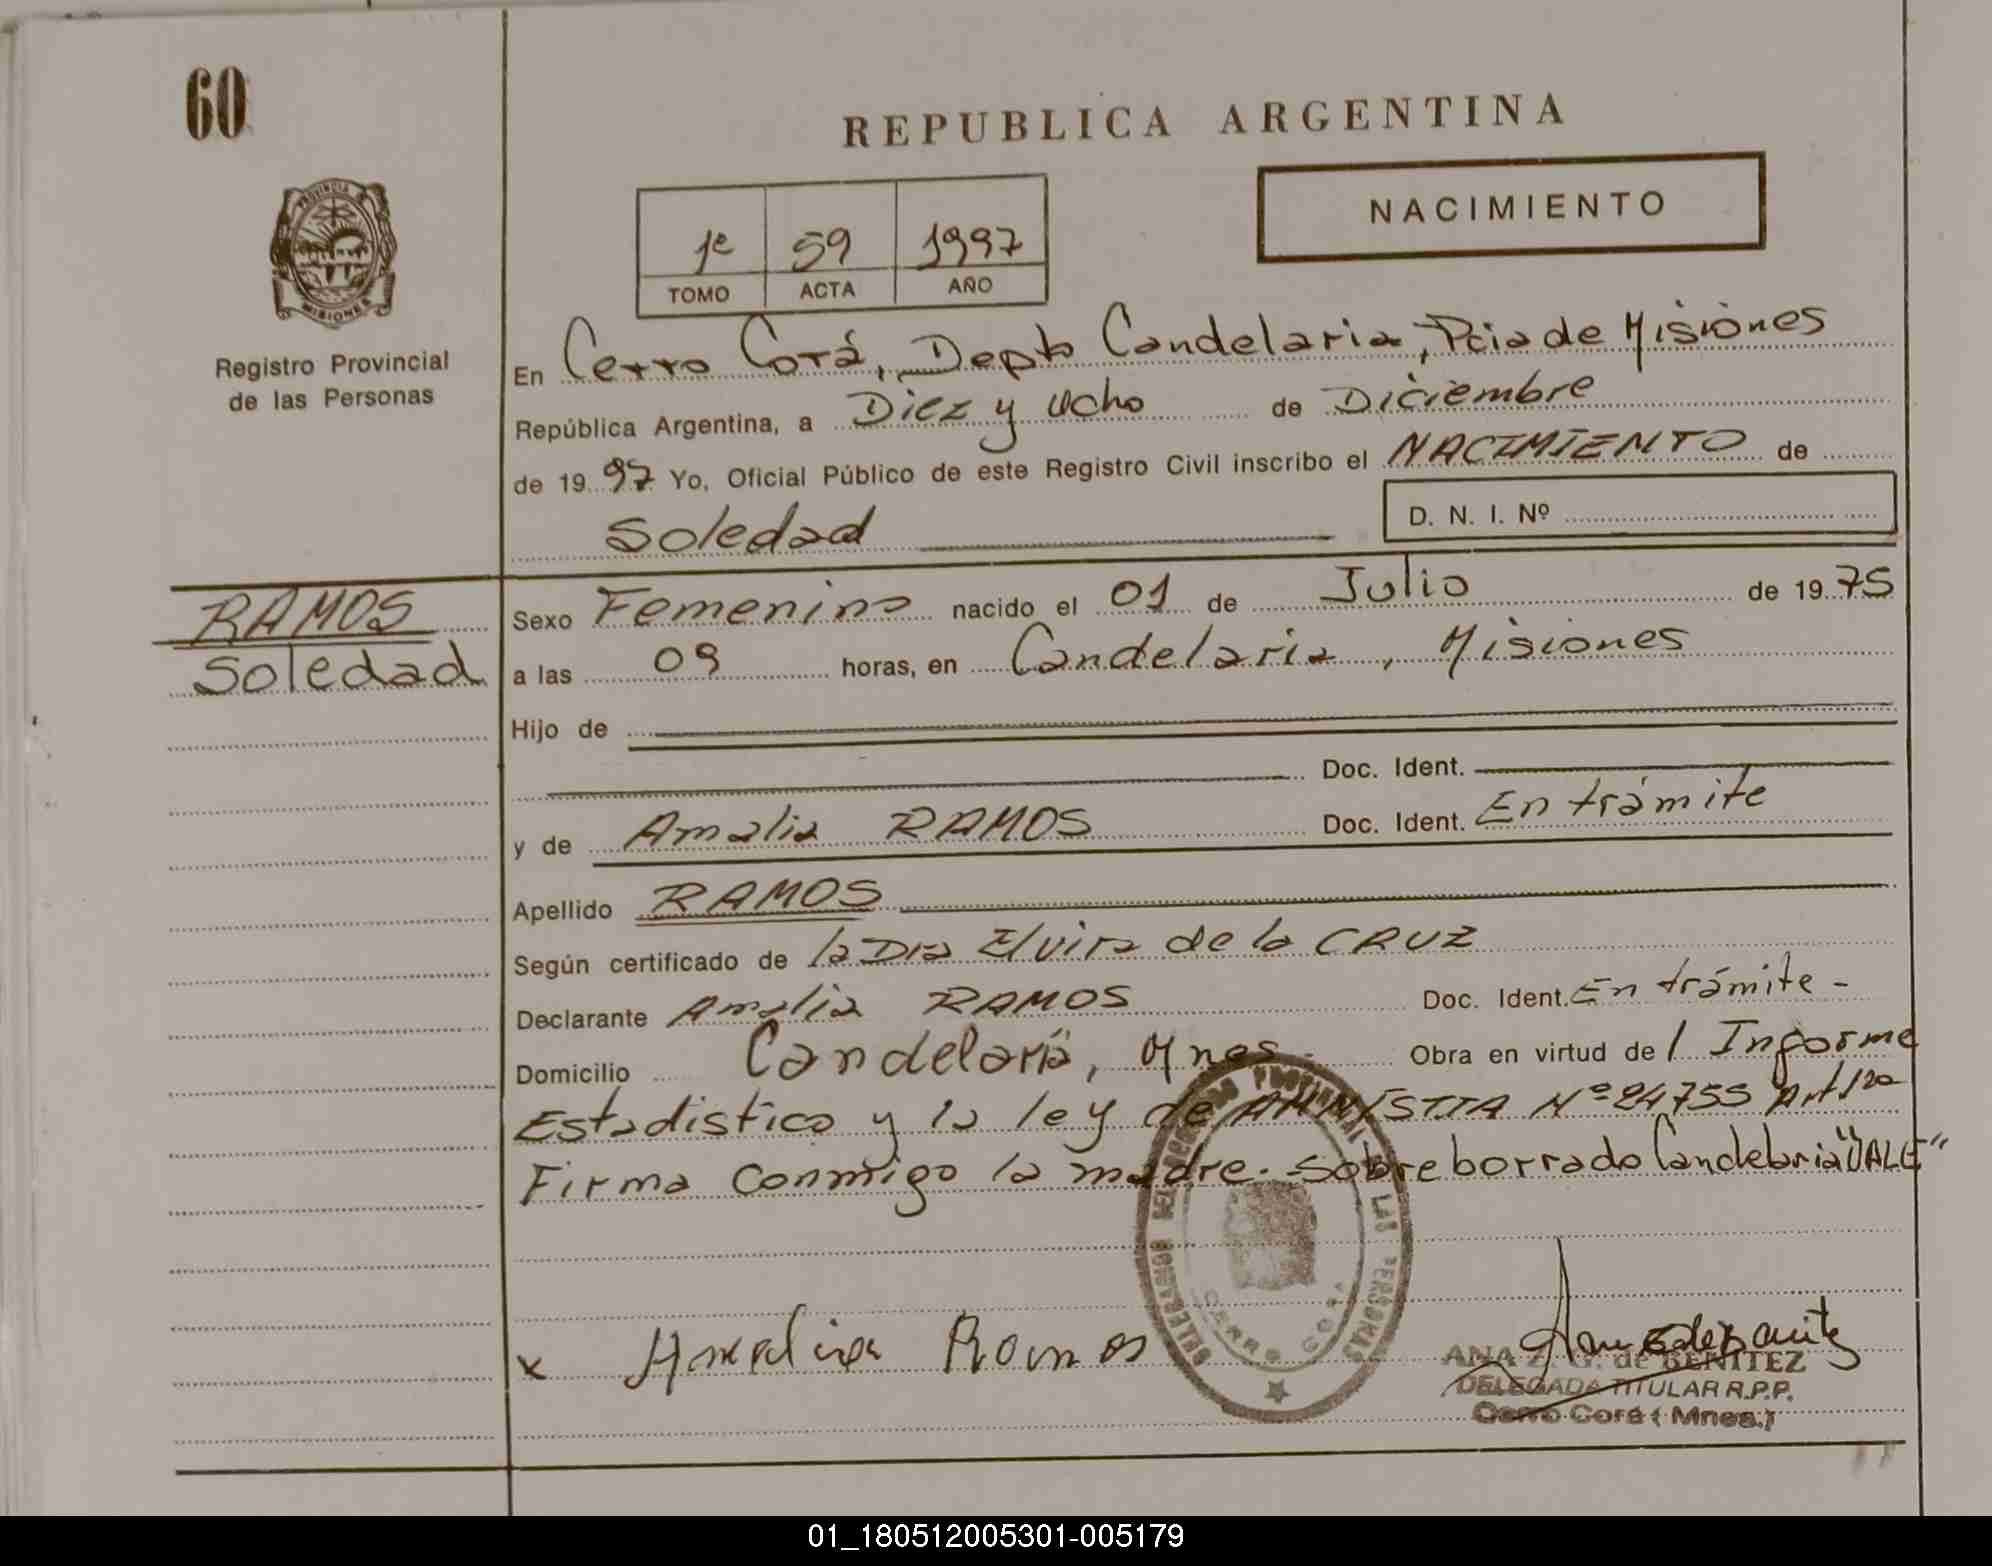 60
REPUBLICA ARGENTINA
NACIMIENTO
1º 59 1997
TOMO ACTA AÑO
PROVINCIA DE MISIONES
Registro Provincial
de las Personas
En Cerro Corá, Depto Candelaria, Pcia de Misiones
República Argentina, a Diez y ocho de Diciembre
de 1997 Yo, Oficial Público de este Registro Civil inscribo el NACIMIENTO de
Soledad D. N. I. Nº
RAMOS
Soledad
Sexo Femenino nacido el 01 de Julio de 1975
a las 09 horas, en Candelaria, Misiones
Hijo de
Doc. Ident.
y de Amalia RAMOS Doc. Ident. En trámite
Apellido RAMOS
Según certificado de la Dra Elvira de la CRUZ
Declarante Amalia RAMOS Doc. Ident. En trámite -
Domicilio Candelaria, Mnes. Obra en virtud de / Informe
Estadistico y la ley de AMNISTIA Nº 24755 Art 1º
Firma conmigo la madre. - Sobreborrado Candelaria "VALE"
REGISTRO PROVINCIAL DE LAS PERSONAS
CERRO CORA
x Amalia Ramos
ANA Z. G. de BENITEZ
DELEGADA TITULAR R.P.P.
Cerro Corá (Mnes.)
01_180512005301-005179